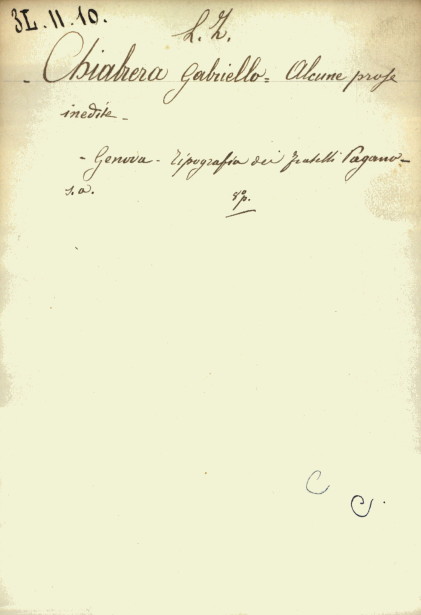 3L. 11. 10.
L. Z.
- Chiabrera Gabriello = Alcune prose
inedite -
- Genova - Tipografia dei fratelli Pagano -
s. a. 8º p.
C C.